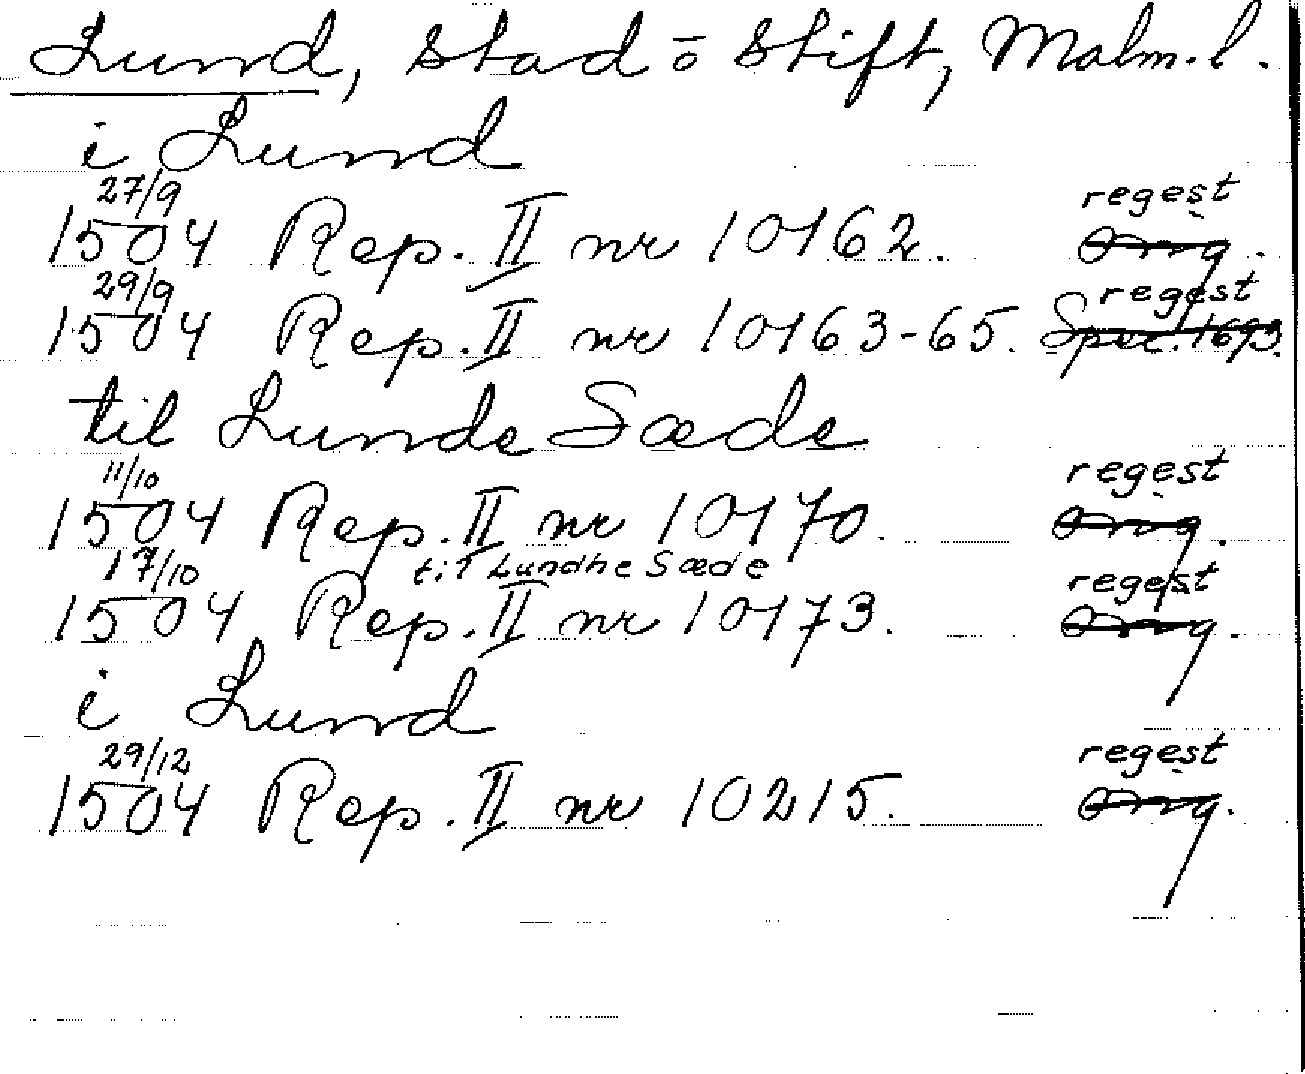 Lund, Stad ō Stift, Malm. l.
i Lund
27/9 regest
1504 Rep. II nr 10162. Orig.
29/9 regest
1504 Rep. II nr 10163-65. Sper. 1693.
til Lunde Sæde
11/10 regest
1504 Rep. II nr 10170. Orig.
17/10 til Lundhe Sæde regest
1504 Rep. II nr 10173. Orig.
i Lund
29/12 regest
1504 Rep. II nr 10215. Orig.